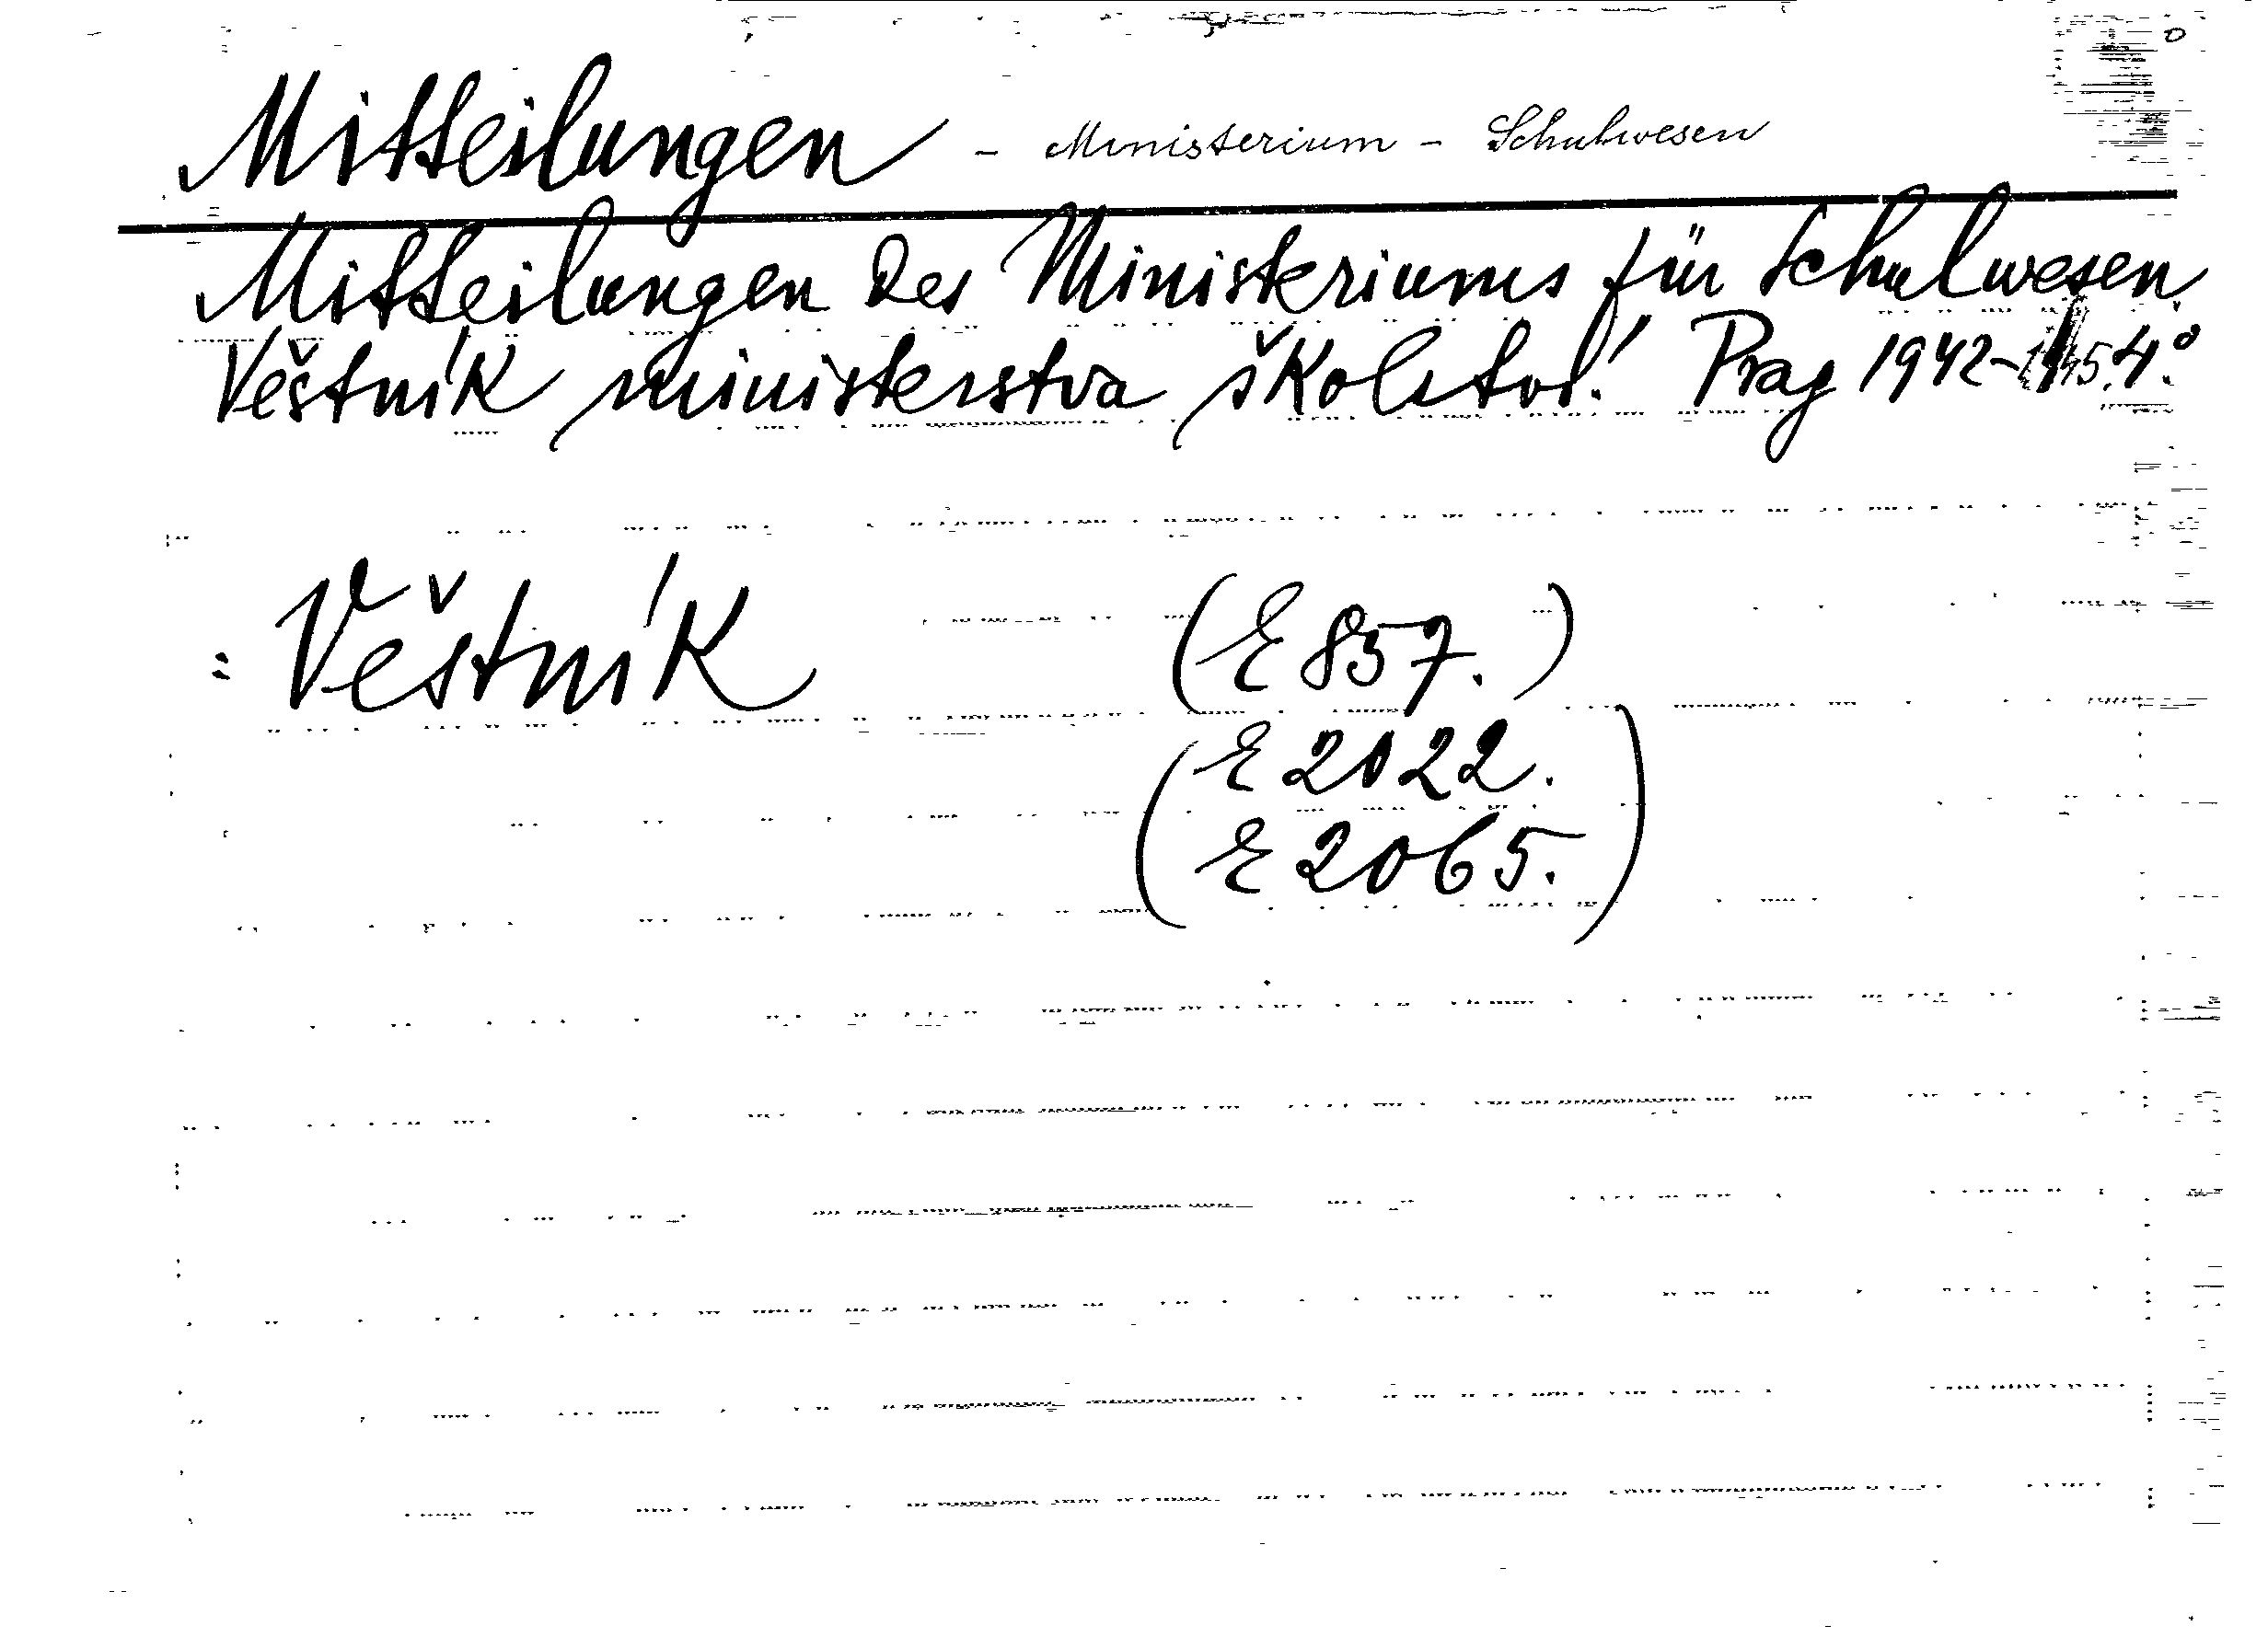 Mitteilungen - Ministerium - Schulwesen
Mitteilungen des Ministeriums für Schulwesen.
Věstník ministerstva školství. Prag 1942-1945. 4°.
= Věstník (E 857.)
(E 2022.
E 2065.)